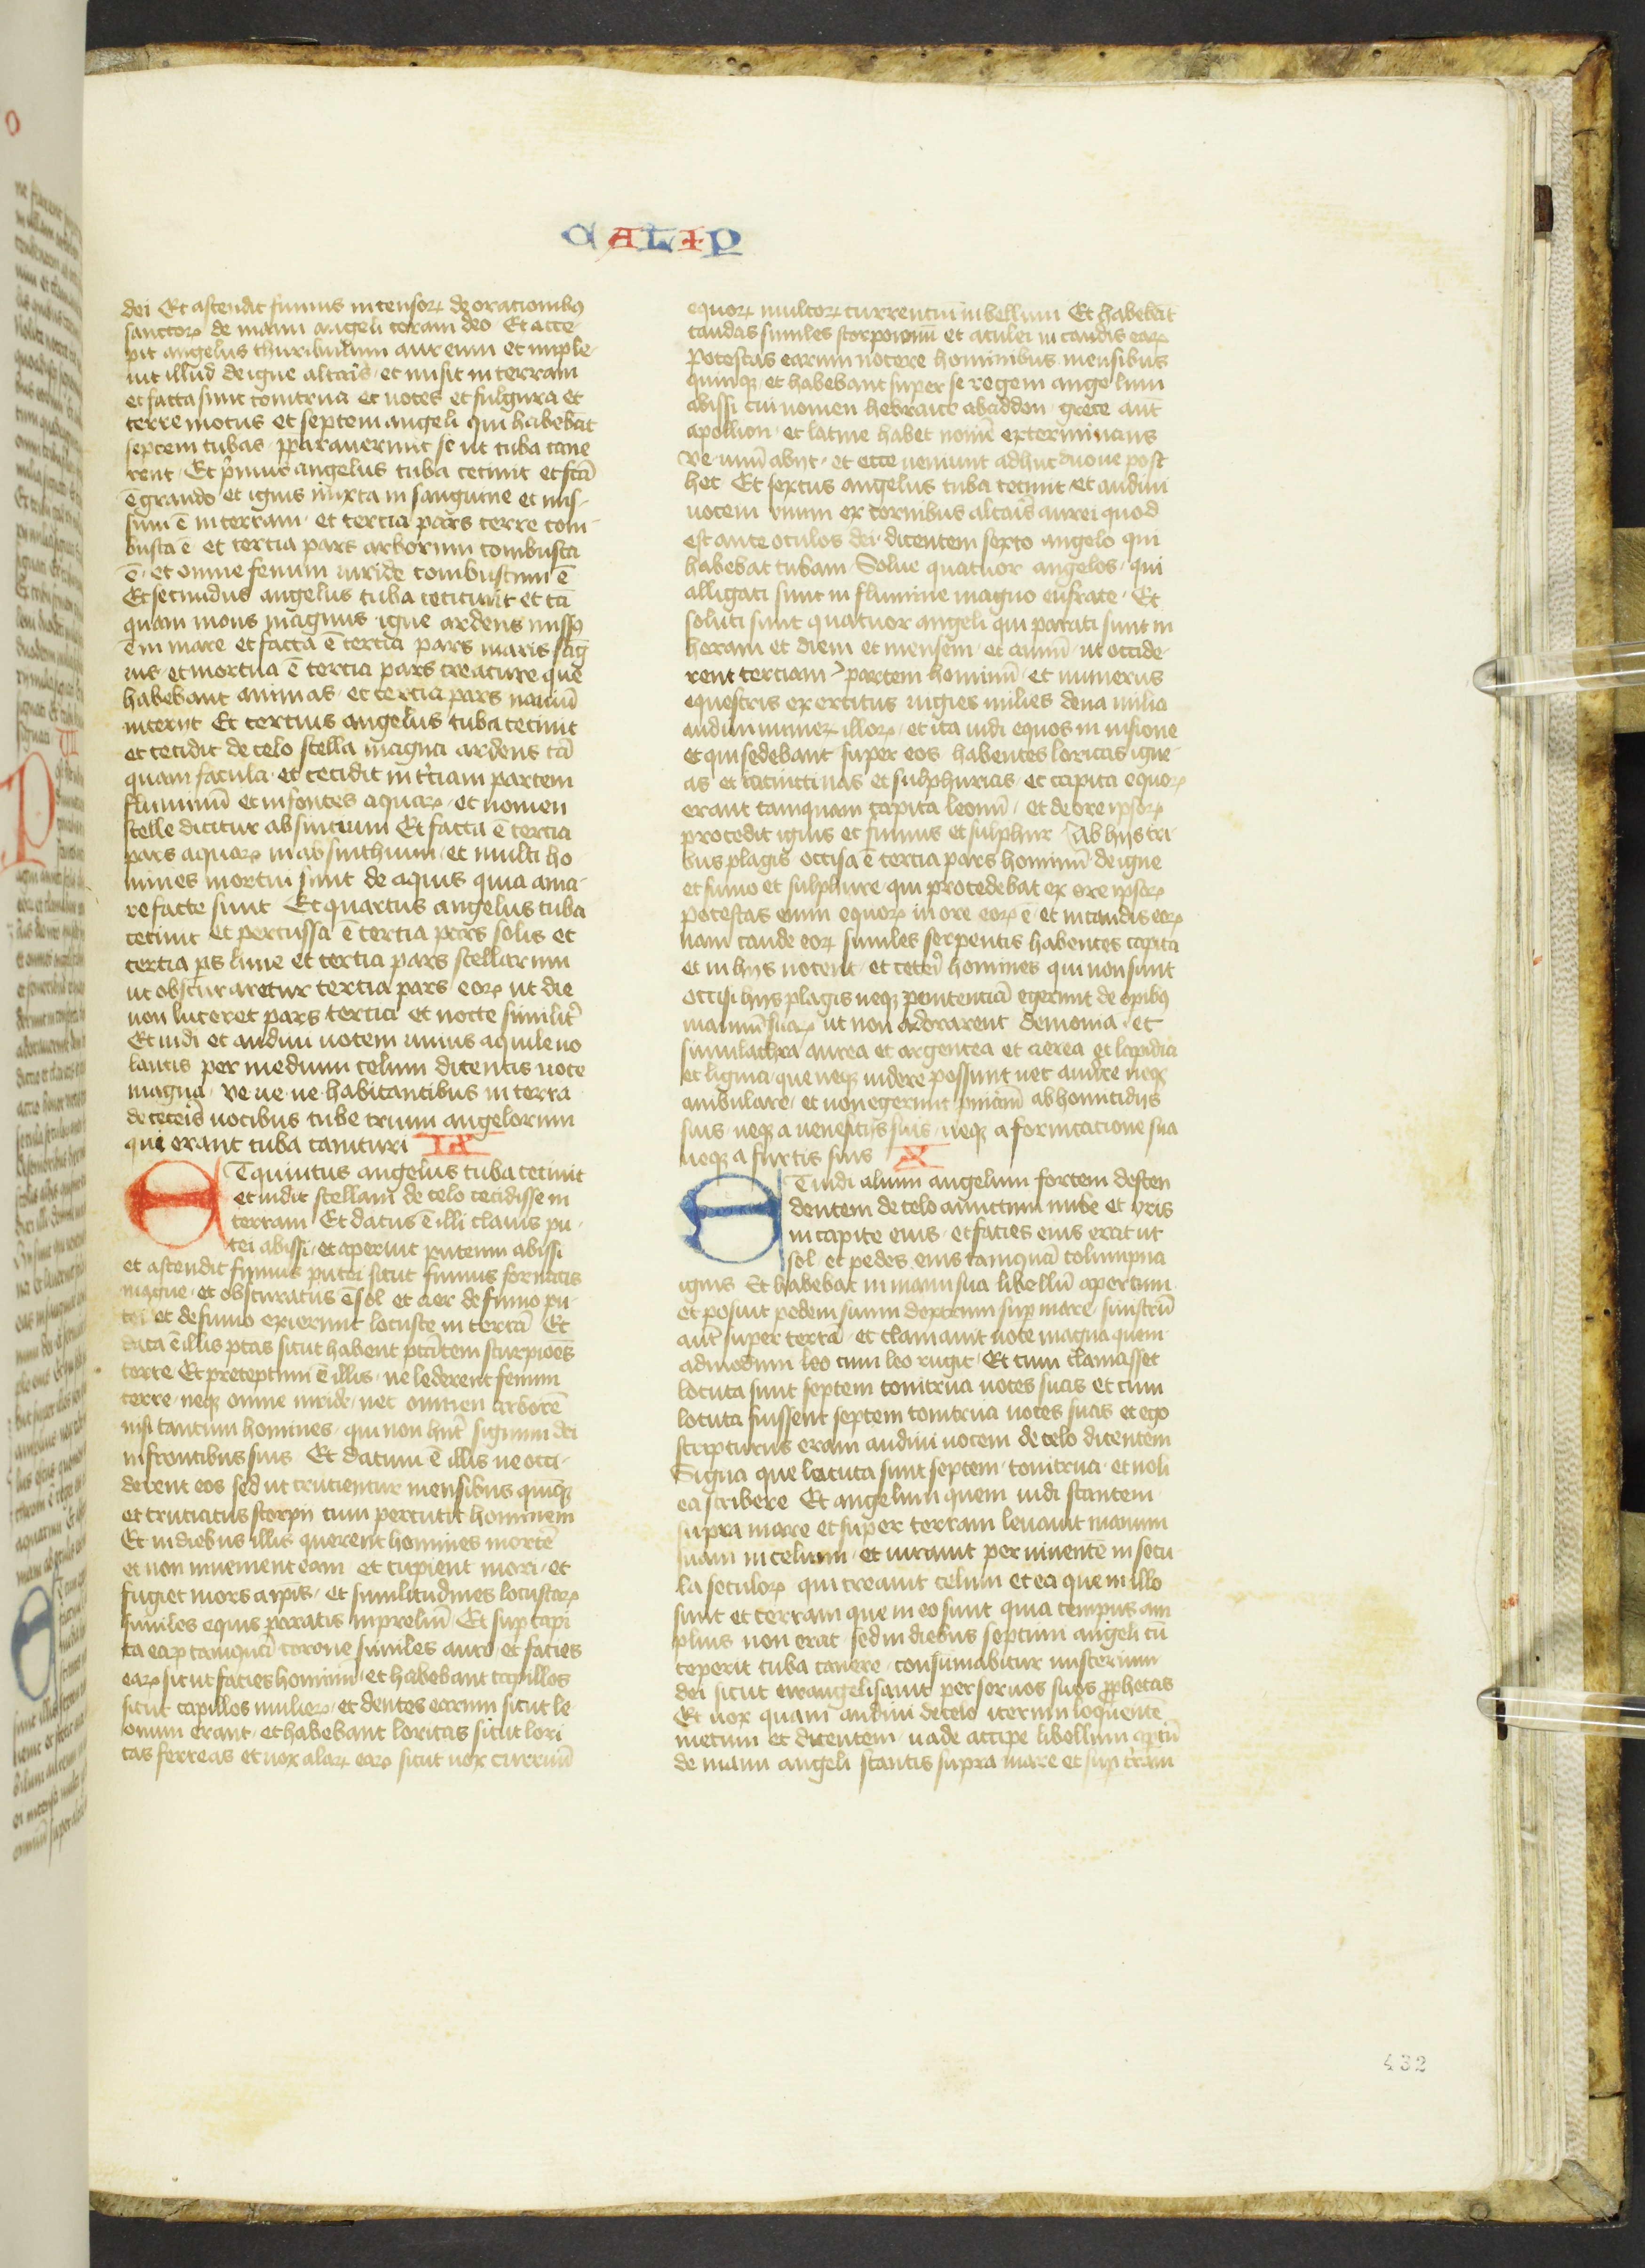 CALIP
dei Et ascendit fumus incensorꝝ de oracionibꝫ
sanctorꝝ de manu angeli coram deo Et acce
pit angelus thuribulum aureum et imple
uit illud de igne altaris et misit in terram
et facta sunt tonitrua et uoces et fulgura et
terre motus et septem angeli qui habebāt
septem tubas p̄parauerunt se ut tuba cane
rent Et primus angelus tuba cecinit et fcā
ē grando et ignis mixta in sanguine et mis
sum ē in terram et tercia pars terre com
busta ē et tercia pars arborum combusta
ē et omne fenum uiride combustum ē
Et secundus angelus tuba cecinit et tā
quam mons magnus igne ardens missꝫ
ē in mare et facta ē tercia pars maris sāg
uis et mortua ē tercia pars creature que
habebant animas et tercia pars nauiū
interiit Et tercius angelus tuba cecinit
et cecidit de celo stella magna ardens tā
quam facula et cecidit in t̄ciam partem
fluminū et in fontes aquarꝝ et nomen
stelle dicitur absintium Et facta ē tercia
pars aquarꝝ in absinthium et multi ho
mines mortui sunt de aquis quia ama
re facte sunt Et quartus angelus tuba
cecinit et percussa ē tercia pars solis et
tercia ps lune et tercia pars stellarum
ut obscuraretur tercia pars eorꝝ ut die
non luceret pars tercia et nocte similiꝉ
Et uidi et audiui uocem unius aquile uo
lantis per medium celum dicentis uoce
magna ve ue ue habitantibus in terra
de ceteris uocibus tube trium angelorum
qui erant tuba canituri IX
ET quintus angelus tuba cecinit
et uidit stellam de celo cecidisse in
terram Et datus ē illi clauis pu
tei abissi et aperuit puteum abissi
et ascendit fumus putei sicut fumus fornacis
magne et obscuratus ē sol et aer de fumo pu
tei et de fumo exierunt locuste in terrā Et
data ē illis ptās sicut habent ptātem scurpiōes
terre Et preceptum ē illis ne lederent fenum
terre neqꝫ omne uiride nec omnen arborē
nisi tantum homines qui non hn̄t signum dei
in frontibus suis Et datum ē illis ne occi
derent eos sed ut crucientur mensibus quinqꝫ
et cruciatus scorpii cum percutit hominem
Et in diebus illis querent homines mortē
et non inuenient eam et cupient mori et
fugiet mors a ip̄is et similitudines locustarꝝ
similes equis paratis in preliū Et sup capi
ta earꝝ tanquā corone similes auro et facies
earꝝ sicut facies hominū et habebant capillos
sicut capillos mulierꝝ et dentes earum sicut le
onum erant et habebant loricas sicut lori
cas ferreas et uox alarꝝ earꝝ sicut uox curruū
equorꝝ multorꝝ currentiū in bellum Et habebāt
caudas similes scorpionū et aculei in caudis earꝝ
Potestas earum nocere hominibus mensibus
quinqꝫ et habebant super se regem angelum
abissi cui nomen hebraice abaddon grece aut̄
apollion et latine habet nomē exterminans
Ve unū abiit et ecce ueniunt adhuc duo ue post
hec Et sextus angelus tuba cecinit et audiui
uocem vnum ex cornibus altaris aurei quod
est ante oculos dei dicentem sexto angelo qui
habebat tubam Solue quatuor angelos qui
alligati sunt in flumine magno eufrate Et
soluti sunt quatuor angeli qui parati sunt in
horam et diem et mensem et annū ut occide
rent terciam partem hominū et numerus
equestris exercitus uigies milies dena milia
audiui numerꝝ illorꝝ et ita uidi equos in uisione
et qui sedebant super eos habentes loricas igne
as et iacinctinas et sulphureas et capita equorꝝ
erant tamquam capita leonū et de ore ipsorꝝ
procedit ignis et fumus et sulphur Ab hijs tri
bus plagis occisa ē tercia pars hominū de igne
et fumo et sulphure qui procedebat ex ore ipsorꝝ
Potestas enim equorꝝ in ore eorꝝ ē et in caudis eorꝝ
nam caude eorꝝ similes serpentis habentes capita
et in hijs nocent et ceteri homines qui non sunt
occisi hijs plagis neqꝫ penitenciā egerunt de opibꝫ
manuū suarꝝ ut non adorarent demonia et
simulachra aurea et argentea et aerea et lapidia
et lignia que neqꝫ uidere possunt nec audire neqꝫ
ambulare et non egerunt pniām ab homicidijs
suis neqꝫ a ueneficijs suis neqꝫ a fornicacione sua
neqꝫ a furtis suis X
ET uidi alium angelum fortem descen
dentem de celo amictum nube et yris
in capite eius et facies eius erat ut
sol et pedes eius tamquā columpna
ignis Et habebat in manu sua libellū apertum
et posuit pedem suum dextrum sup mare sinistrū
aut̄ super terrā et clamauit uoce magna quem
admodum leo cum leo rugit Et cum clamasset
locuta sunt septem tonitrua uoces suas et cum
locuta fuissent septem tonitrua uoces suas et ego
scripturus eram audiui uocem de celo dicentem
Signa que locuta sunt septem tonitrua et noli
ea scribere Et angelum quem uidi stantem
supra mare et super terram leuauit manum
suam in celum et iurauit per uiuentē in secu
la seculorꝝ qui creauit celum et ea que in illo
sunt et terram que in eo sunt quia tempus am
plius non erat sed in diebus septimi angeli cū
ceperit tuba canere consūmabitur misterium
dei sicut ewangelisauit per seruos suos p̄phetas
Et uox quam audiui de celo iterum loquentē
mecum et dicentem uade accipe libellum aptū
de manu angeli stantis supra mare et sup t̄ram
432